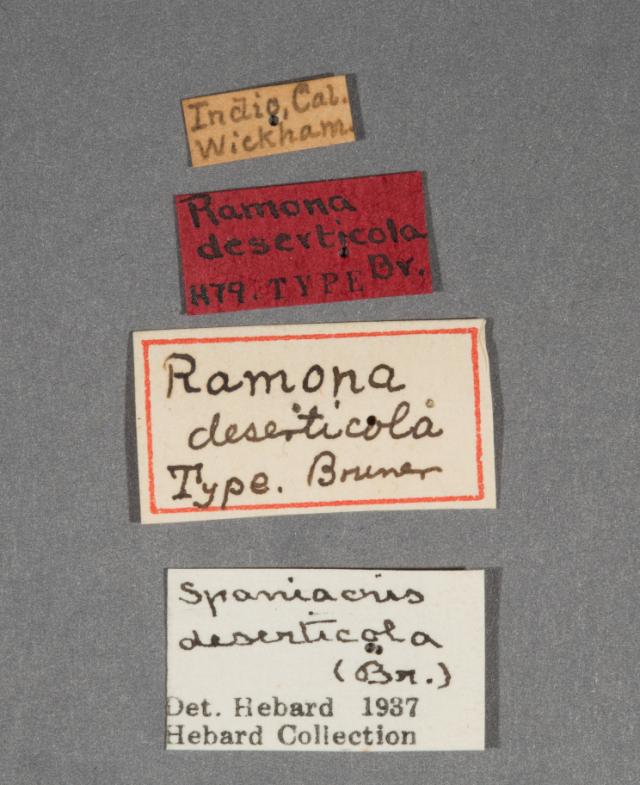 Indio, Cal.
Wickham.
Ramona
deserticola
Br.
H79. TYPE
Ramona
deserticola
Type. Bruner
Spaniacris
deserticola
(Br.)
Det. Hebard 1937
Hebard Collection